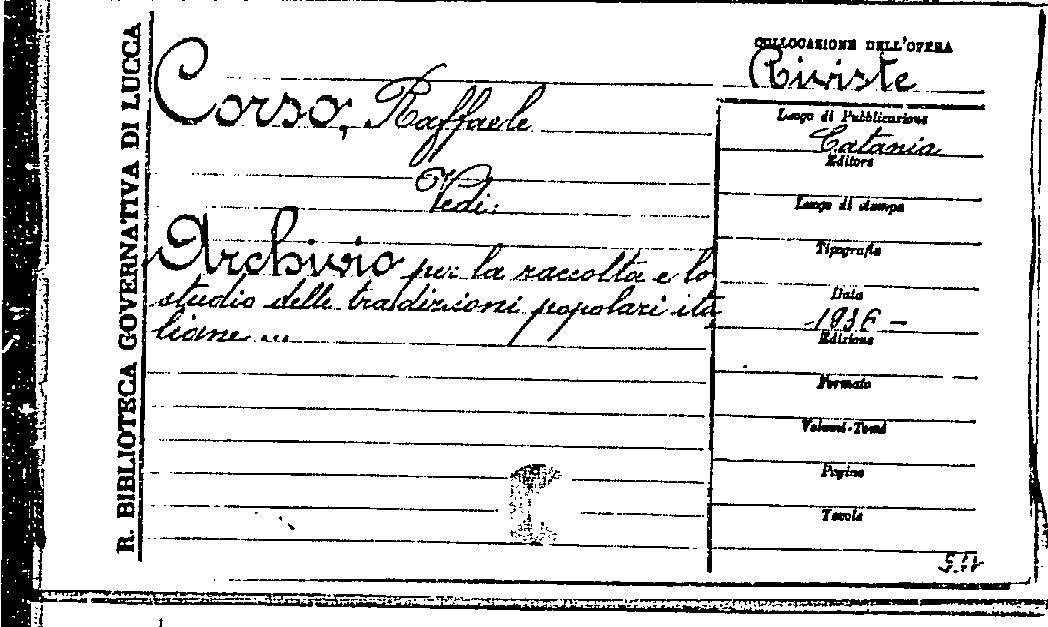 R. BIBLIOTECA GOVERNATIVA DI LUCCA
Corso, Raffaele
Vedi:
Archivio per la raccolta e lo
studio delle tradizioni popolari ita
liane ...
COLLOCAZIONE DELL'OPERA
Riviste
Luogo di Pubblicazione
Catania
Editore
Luogo di stampa
Tipografia
Data
1936 -
Edizione
Formato
Volumi-Tomi
Pagine
Tavole